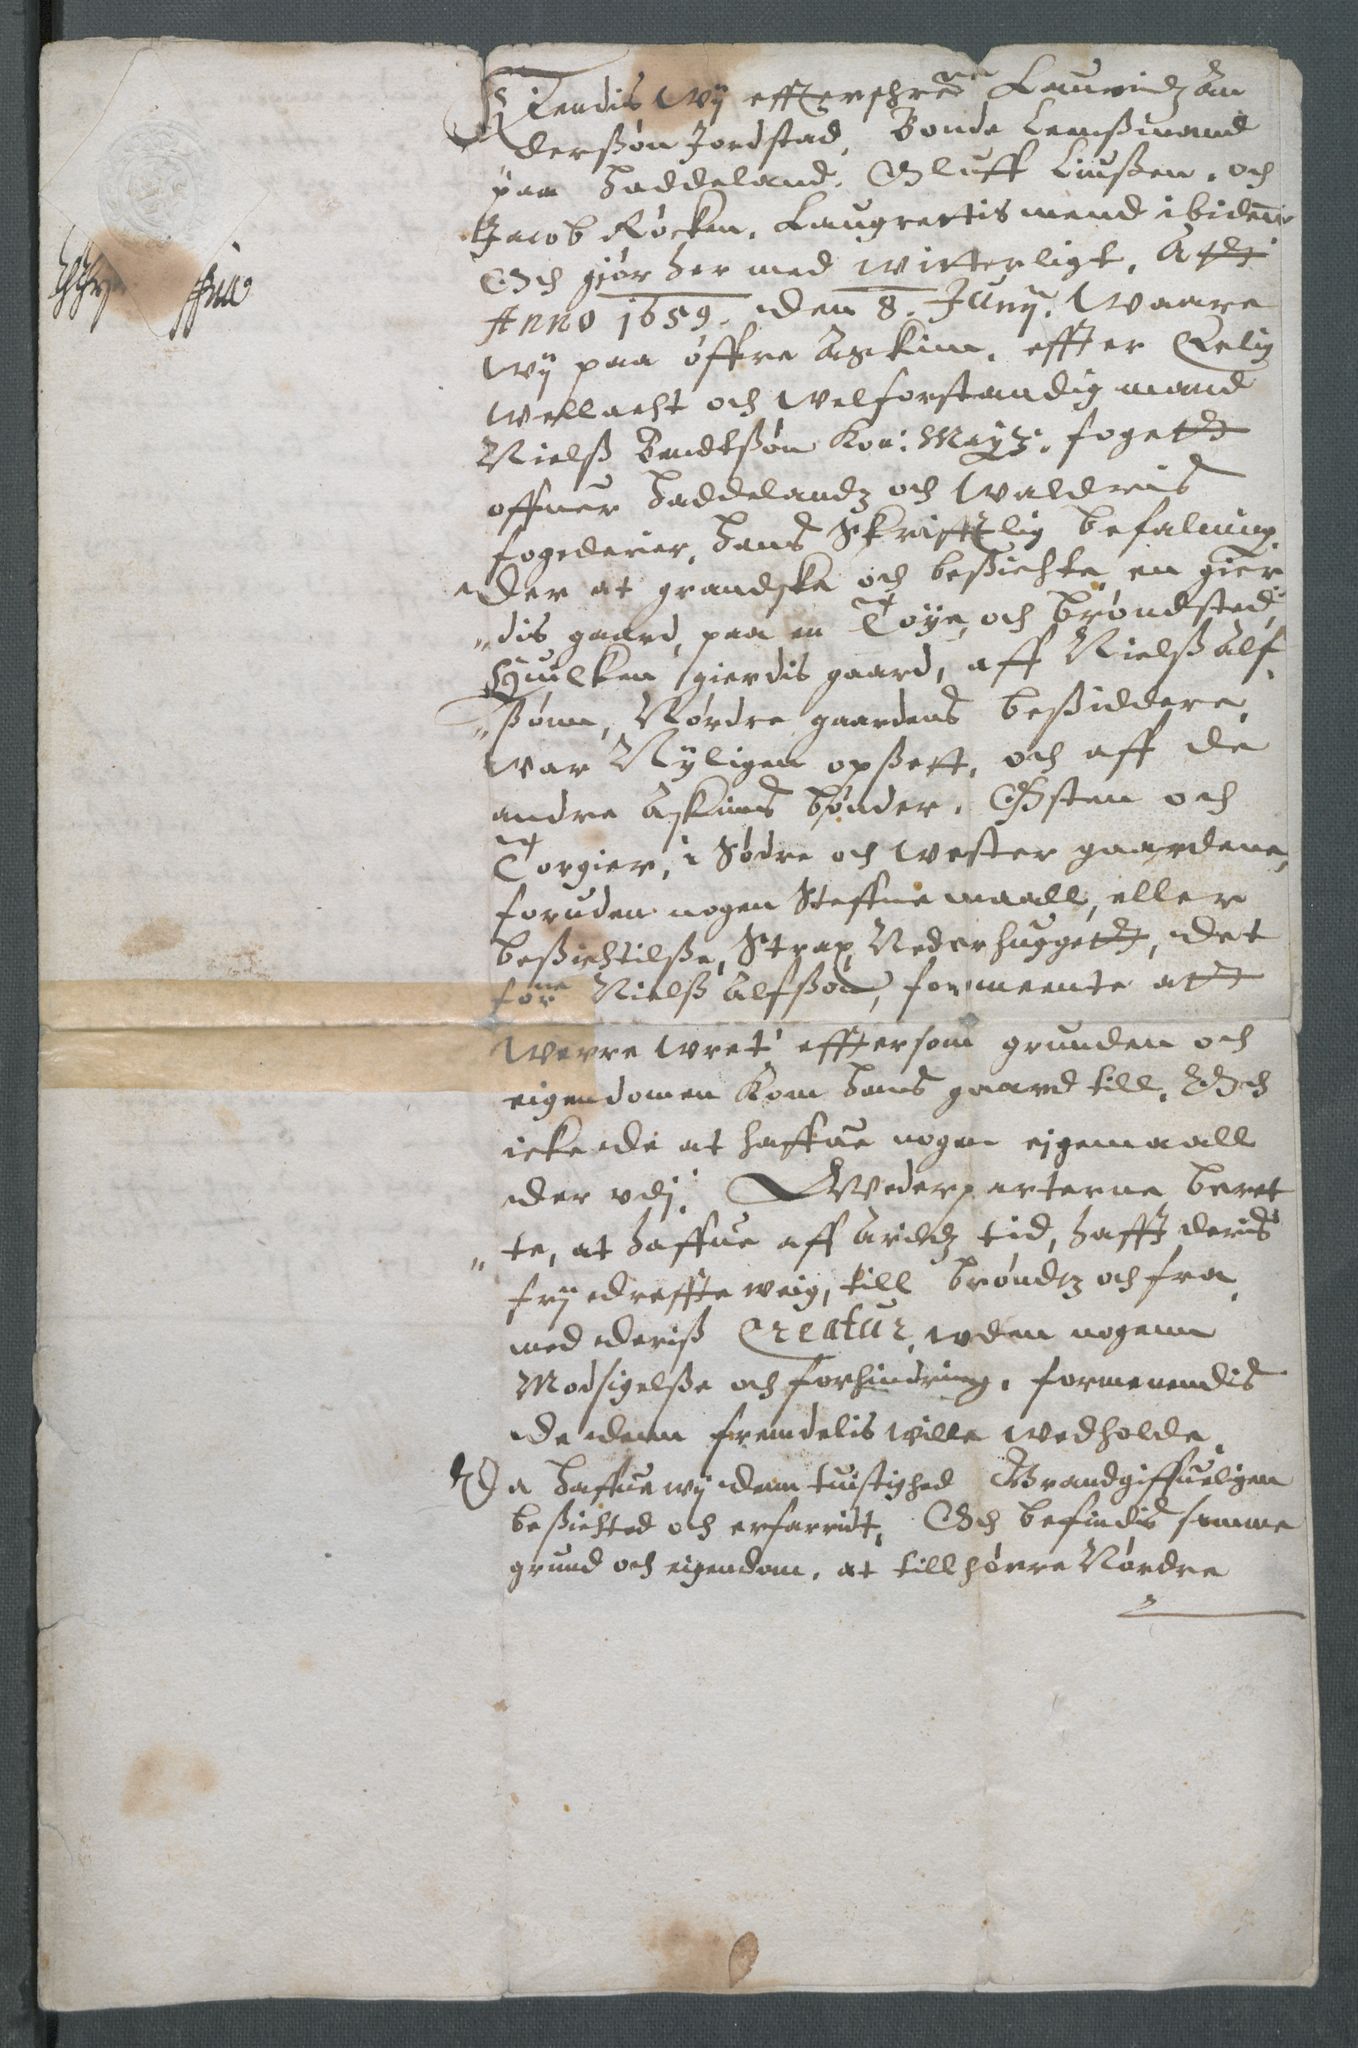 Kiendis Wij effterschrẽne Lauridz An
derßøn Jordstad, Bonde Lenßmand
paa Haddeland, Oluff Liußen, och
Jacob Røcken, Laugrettis mend ibidem
Och giør her med witterligt, Att
Anno 1659. den 8. Junij. Waare
Wij paa øffre Askim, effter Erlig
Wellacht och Welforstandig mand
Nielß Bendtßøn Kon: Maÿtz: fogett
offuer Haddelandz och Waldris
fogederier, Hans Skrifftlig befalning,
der at grandske och beßichte en gier
"dis gaard, paa en Tøye, och brøndsted,
Huilken gierdis gaard, aff Nielß Alf
"ßønn, Nørdre gaardens beßiddere,
War Nÿligen opßett, och aff de
andre Askims bønder, Østen och
Torgier, i Sødre och Wester gaardene,
foruden nogen Steffnemaall, eller
beßichtilße, Strax Nederhuggett, det
forne Nielß Alfßøn, formeente att
Werre Wret, efftersom grunden och
eigendomen kom Hans gaard till, Och
icke de at haffue nogen eigemaall
der vdj. Wederparterne beret
"te, at Haffue aff Arildz tid, Hafft deris
frij dreffte weig, till brøndtz och fra,
med deriß Creatur, uden nogenn
Modsigelße och forhindring, formenendis
de denn fremdelis wille wedholde,
Da Haffue wij dem tuistighed Grandgiffueligen
beßichted och erfarridt, Och befindis samme
grund och eigendom, at tillhørre Nørdre